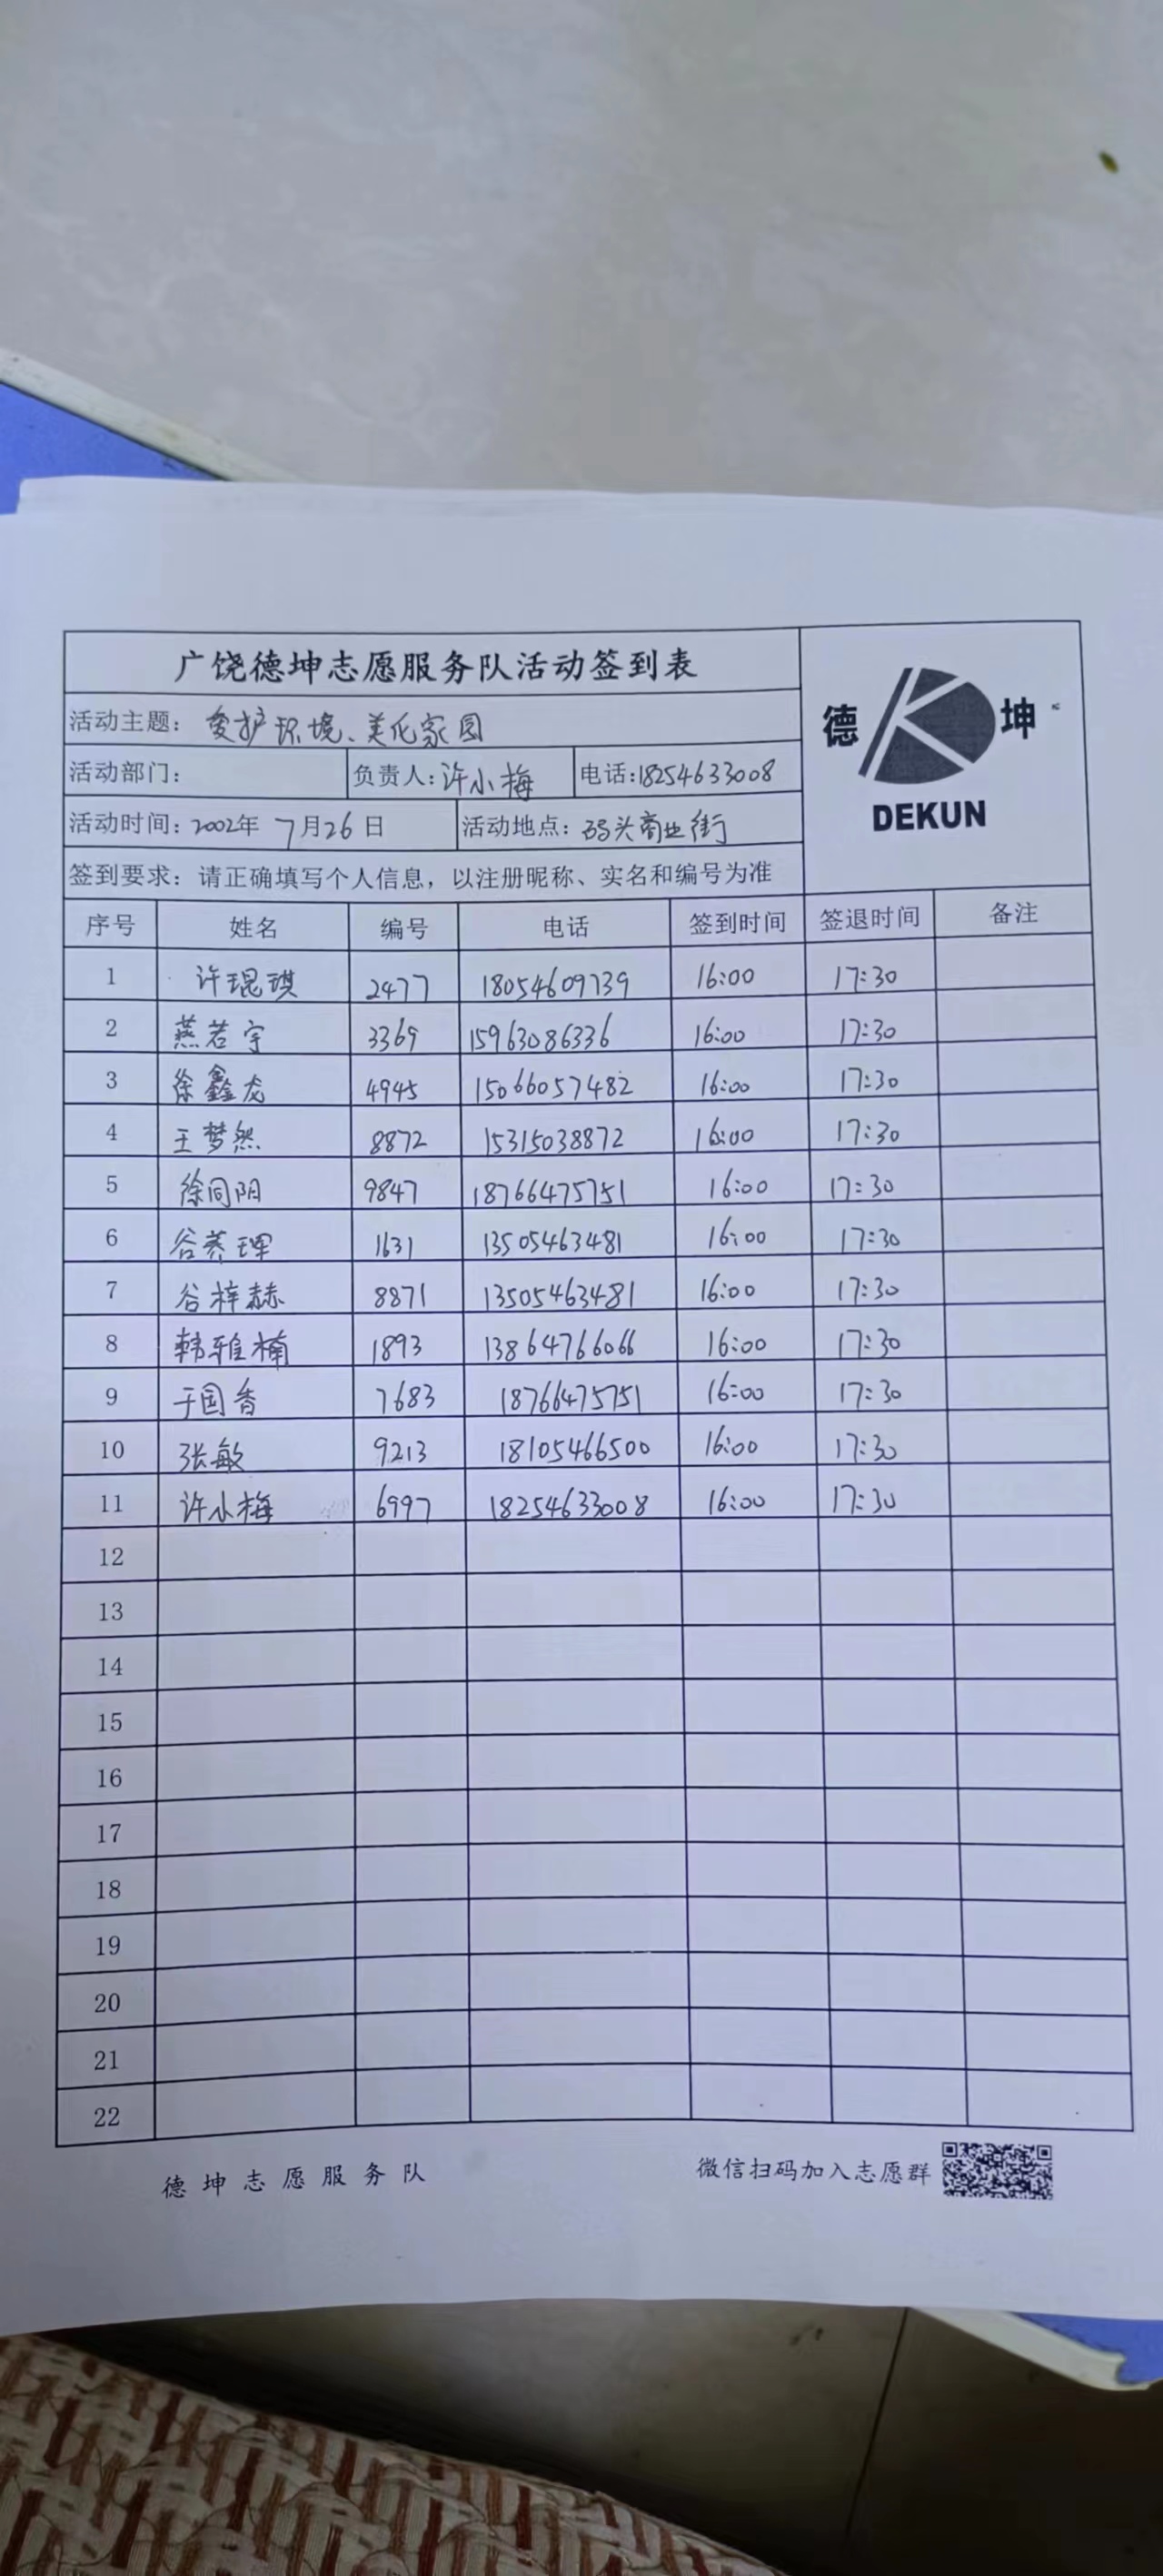 广饶德坤志愿服务队活动签到表
德 坤
DEKUN
活动主题：爱护环境、美化家园
活动部门： 负责人：许小梅 电话：18254633008
活动时间：2002年 7月26日 活动地点：码头商业街
签到要求：请正确填写个人信息，以注册昵称、实名和编号为准
序号 姓名 编号 电话 签到时间 签退时间 备注
1 许琨琪 2477 18054609739 16:00 17:30
2 燕若宇 3369 15963086336 16:00 17:30
3 徐鑫龙 4945 15066057482 16:00 17:30
4 王梦然 8872 15315038872 16:00 17:30
5 徐同阴 9847 18766475751 16:00 17:30
6 谷 1631 13505463481 16:00 17:30
7 谷梓赫 8871 13505463481 16:00 17:30
8 韩雅楠 1893 13864766066 16:00 17:30
9 于国香 7683 18766475751 16:00 17:30
10 张敏 9213 18105466500 16:00 17:30
11 许小梅 6997 18254633008 16:00 17:30
12
13
14
15
16
17
18
19
20
21
22
德坤志愿服务队 微信扫码加入志愿群